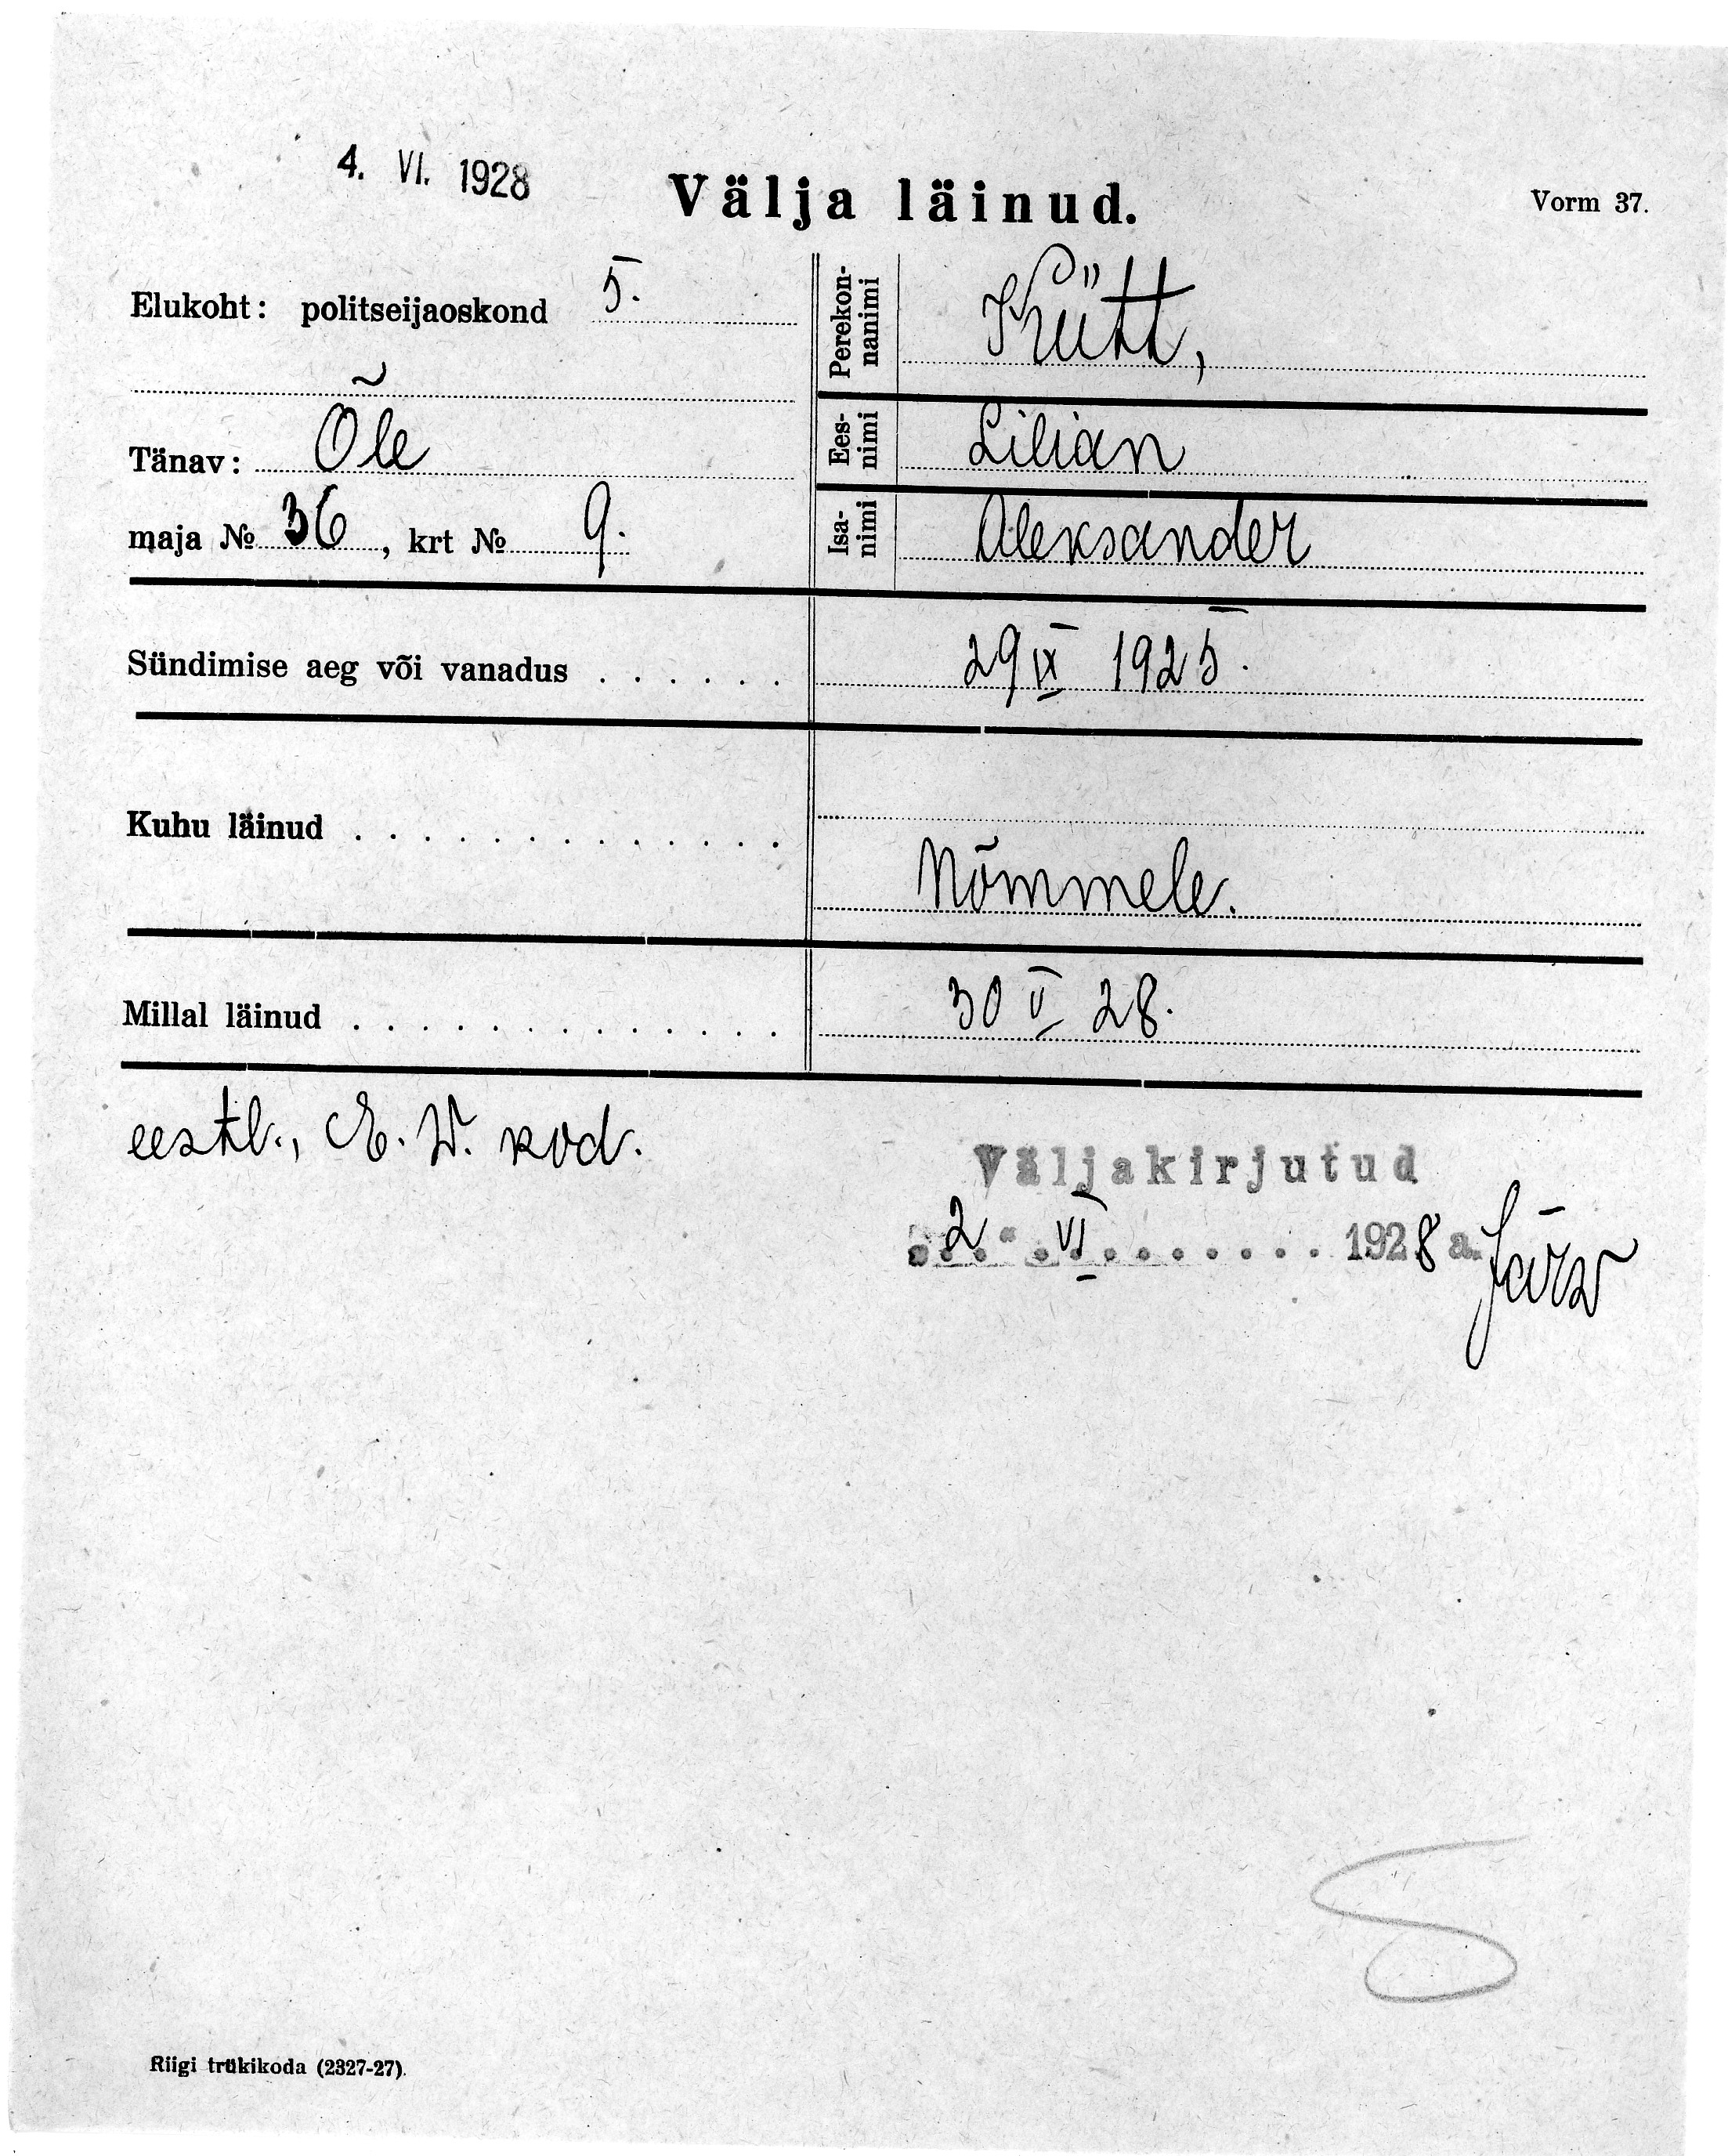 4. VI. 1928
Välja läinud.
Vorm 37.
Elukoht: politseijaoskond 5.
Tänav: Õle
maja № 36, krt № 9.
Perekon-
nanimi
Kütt,
Ees-
nimi
Lilian
Isa-
nimi
Aleksander
Sündimise aeg või vanadus . . . . . . 29 IX 1925.
Kuhu läinud . . . . . . . . . . . . .
Nõmmele.
Millal läinud . . . . . . . . . . . . . 30 V 28.
eestl., E. W. kod.
Väljakirjutud
2. VI. 1928 a. Järw
Riigi trükikoda (2327-27).